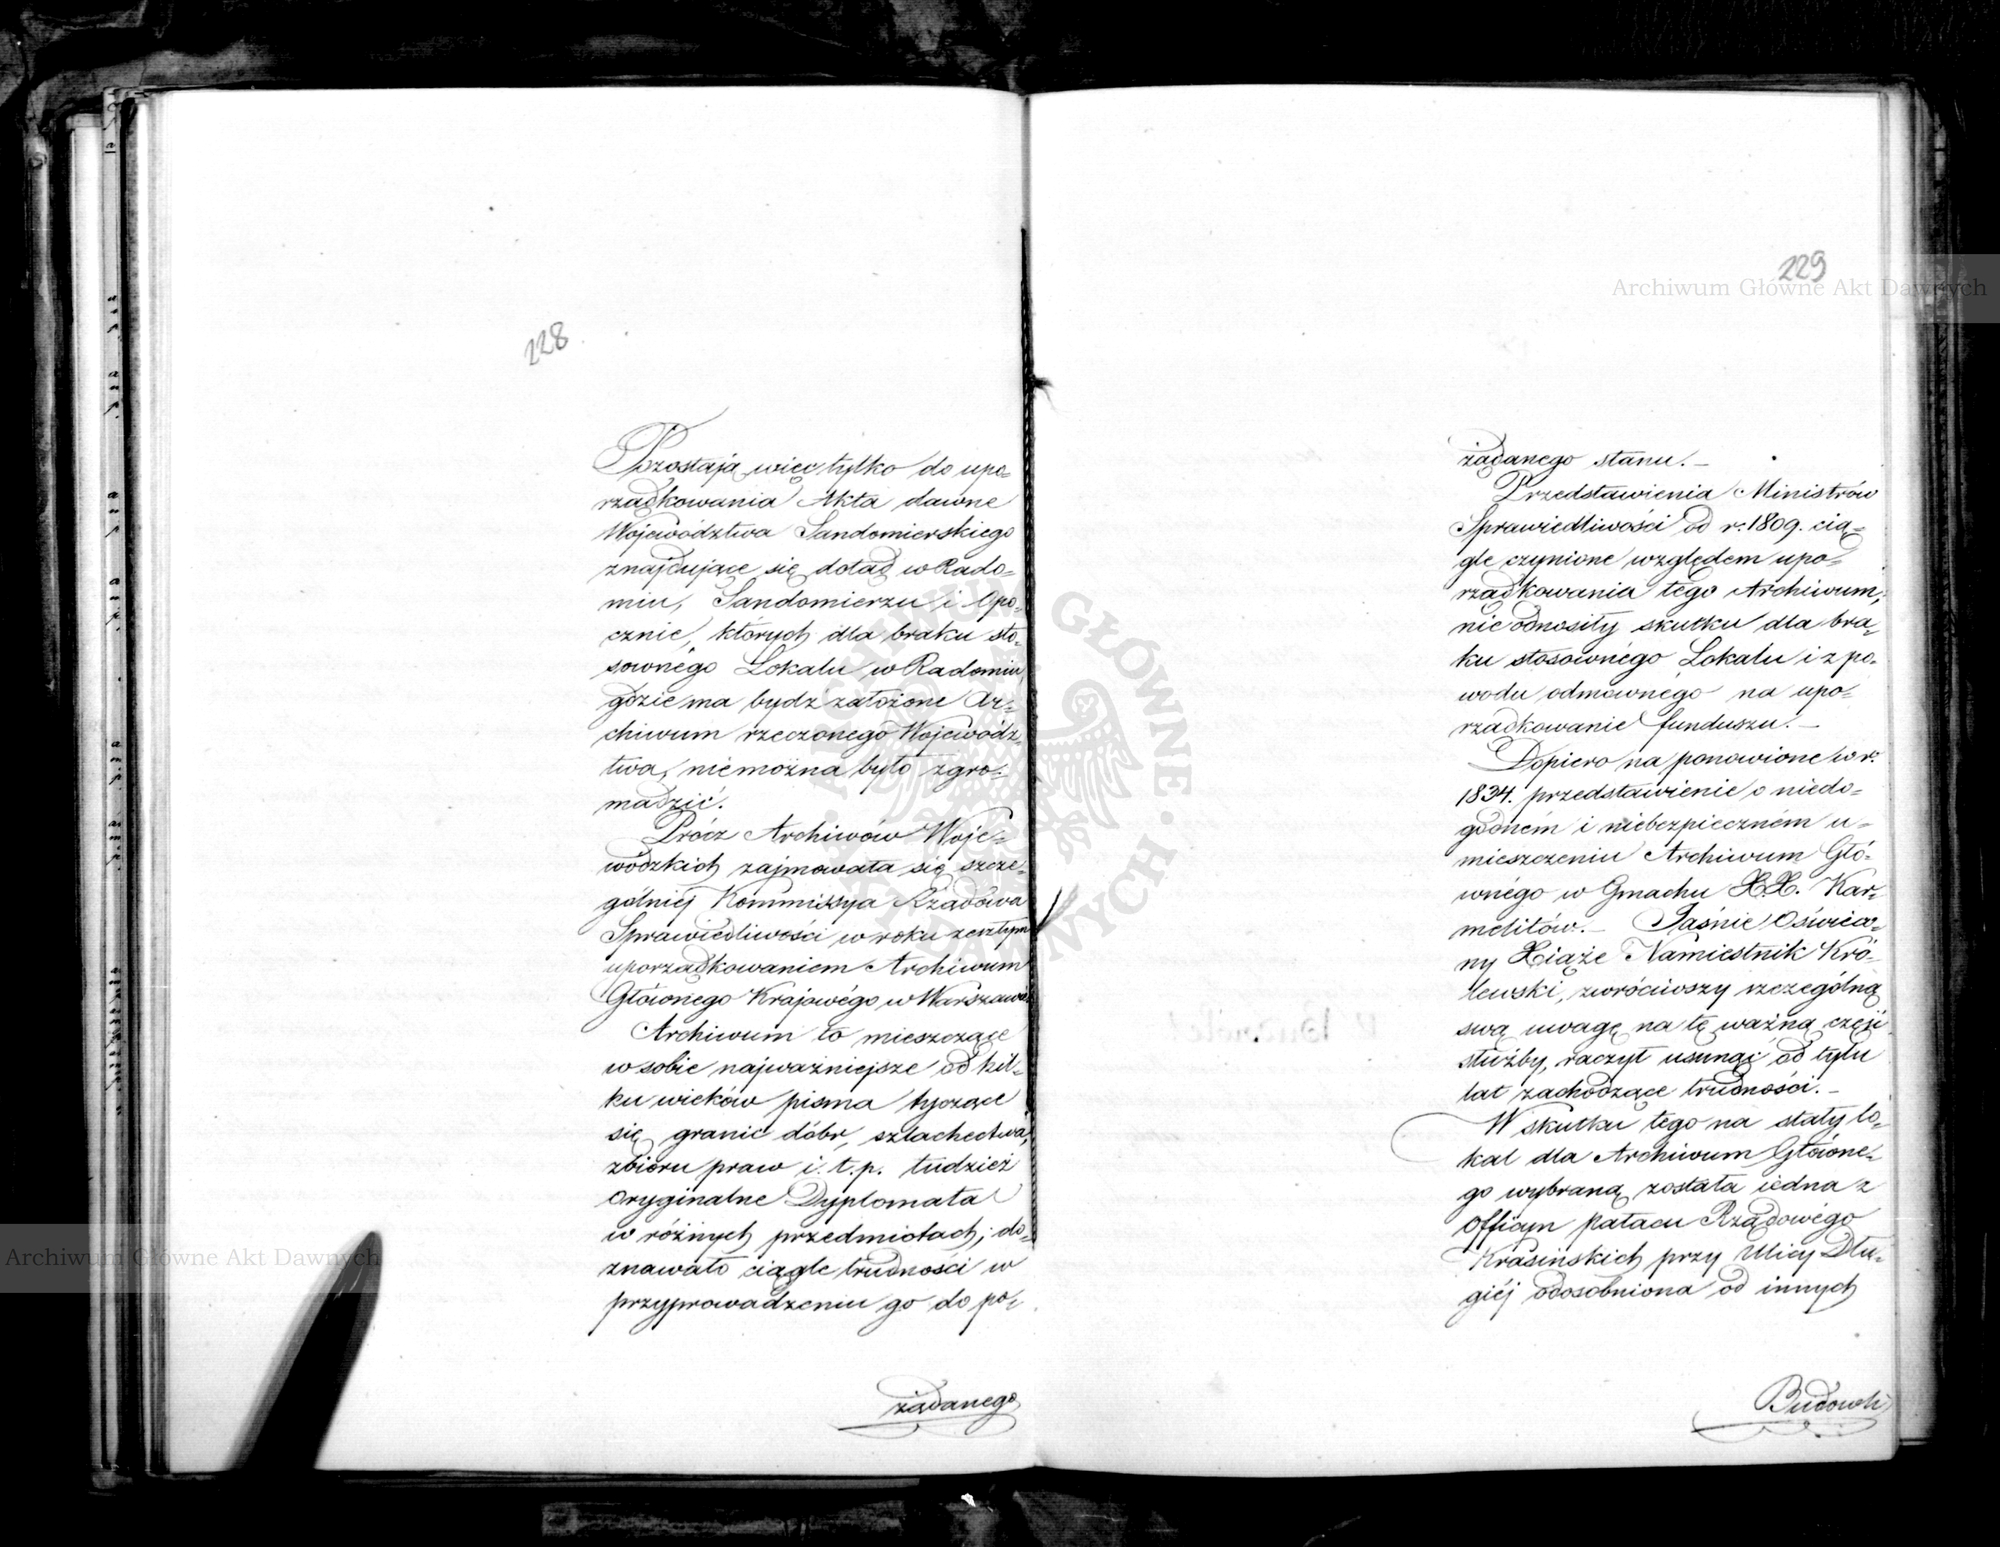 228
Pozostają więc tylko do upo-
rządkowania Akta dawne
Województwa Sandomierskiego
znajdujące się dotąd w Rado-
miu, Sandomierzu i Opo-
cznie, których dla braku sto-
sownégo Lokalu w Radomiu
gdzie ma bydz założone Ar-
chiwum rzeczonego Wojewódz-
twa, niemożna było zgro-
madzić.
Prócz Archiwów Woje-
wódzkich zajmowała się szcze-
gólniéj Kommissya Rządowa
Sprawiedliwości w roku zeszłym
uporządkowaniem Archiwum
Głównego Krajowégo w Warszawie
Archiwum to mieszczące
w sobie najważniejsze od kil-
ku wieków pisma tyczące
się granic dóbr, szlachectwa,
zbioru praw i. t. p. tudzież
oryginalne Dyplomata
w różnych przedmiotach; do-
znawało ciągle trudności w
przyprowadzeniu go do po-
żądanego
229
żądanego stanu. –
Przedstawienia Ministrów
Sprawiedliwości od r. 1809. cią-
gle czynione względem upo-
rządkowania tego Archiwum,
nie odnosiły skutku dla bra-
ku stosownégo Lokalu i z po-
wodu odmównégo na upo-
rządkowanie funduszu. –
Dopiero na ponowione w r.
1834. przedstawienie o niedo-
godném i niebezpieczném u-
mieszczeniu Archiwum Głó-
wnégo w Gmachu XX. Kar-
melitów. – Jaśnie Oświeco-
ny Xiąże Namiestnik Kró-
lewski, zwróciwszy szczególną
swą uwagę na tę ważną część
służby, raczył usunąć od tylu
lat zachodzące trudności. –
W skutku tego na stały lo-
kal dla Archiwum Główne-
go wybraną została jedna z
Officyn pałacu Rządowégo
Krasińskich przy Ulicy Dłu-
giéj odosobniona od innych
Budowli
Archiwum Główne Akt Dawnych
Archiwum Główne Akt Dawnych